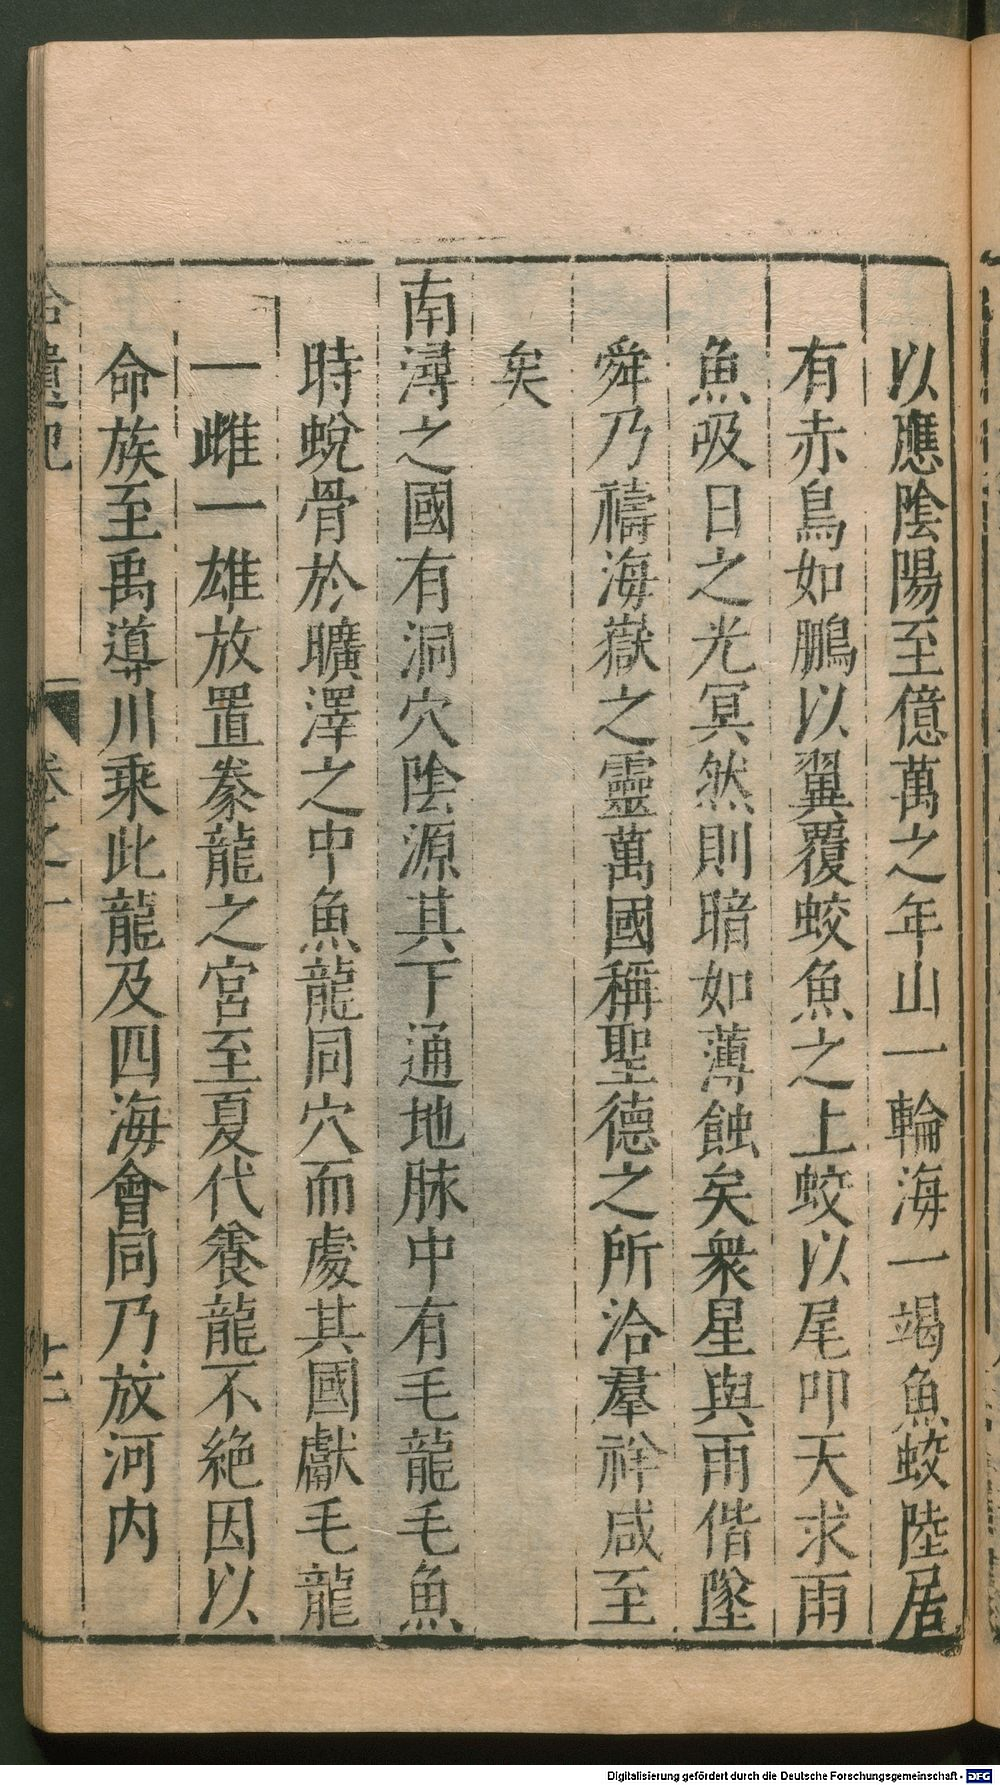 以應陰陽至億萬之年山一輪海一竭魚蛟陸居
有赤鳥如鵬以翼覆蛟魚之上蛟以尾叩天求雨
魚吸日之光冥然則暗如薄蝕矣衆星與雨偕墜
舜乃禱海嶽之靈萬國稱聖德之所洽羣祥咸至
矣
南潯之國有洞穴陰源其下通地脉中有毛龍毛魚
時蛻骨於曠澤之中魚龍同穴而處其國獻毛龍
一雌一雄放置豢龍之宮至夏代養龍不絕因以
命族至禹導川乘此龍及四海會同乃放河内
拾遺記 卷之一 十二
Digitalisierung gefördert durch die Deutsche Forschungsgemeinschaft - DFG